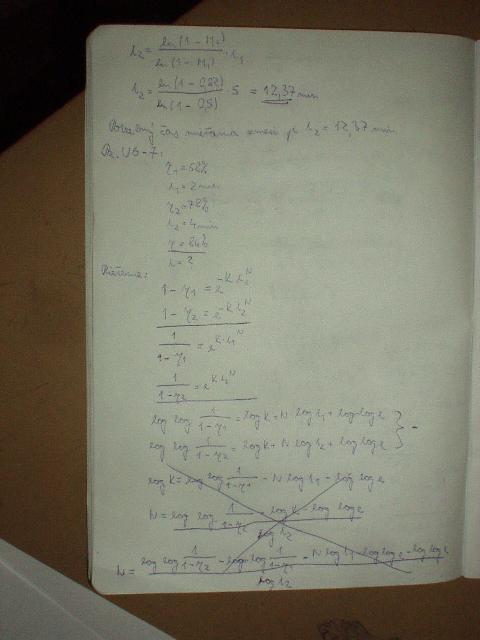 t₂ = ln(1 - M₂) / ln(1 - M₁) · t₁
t₂ = ln(1 - 0,82) / ln(1 - 0,5) · 5 = 12,37 min
čas miešania zmesi je t₂ = 12,37 min
Pr. V6-7:
η₁ = 58%
t₁ = 2 min
η₂ = 78%
t₂ = 4 min
η = 86%
t = ?
Riešenie:
1 - η₁ = e^(-K t₁^N)
1 - η₂ = e^(-K t₂^N)
1 / (1 - η₁) = e^(K·t₁^N)
1 / (1 - η₂) = e^(K t₂^N)
log log 1 / (1 - η₁) = log K + N log t₁ + log log e } -
log log 1 / (1 - η₂) = log K + N log t₂ + log log e
log K = log log 1 / (1 - η₁) - N log t₁ - log log e
N = log log 1 / (1 - η₂) - log K - log log e / log t₂
N = log log 1 / (1 - η₂) - log log 1 / (1 - η₁) - N log t₁ - log log e - log log e / log t₂